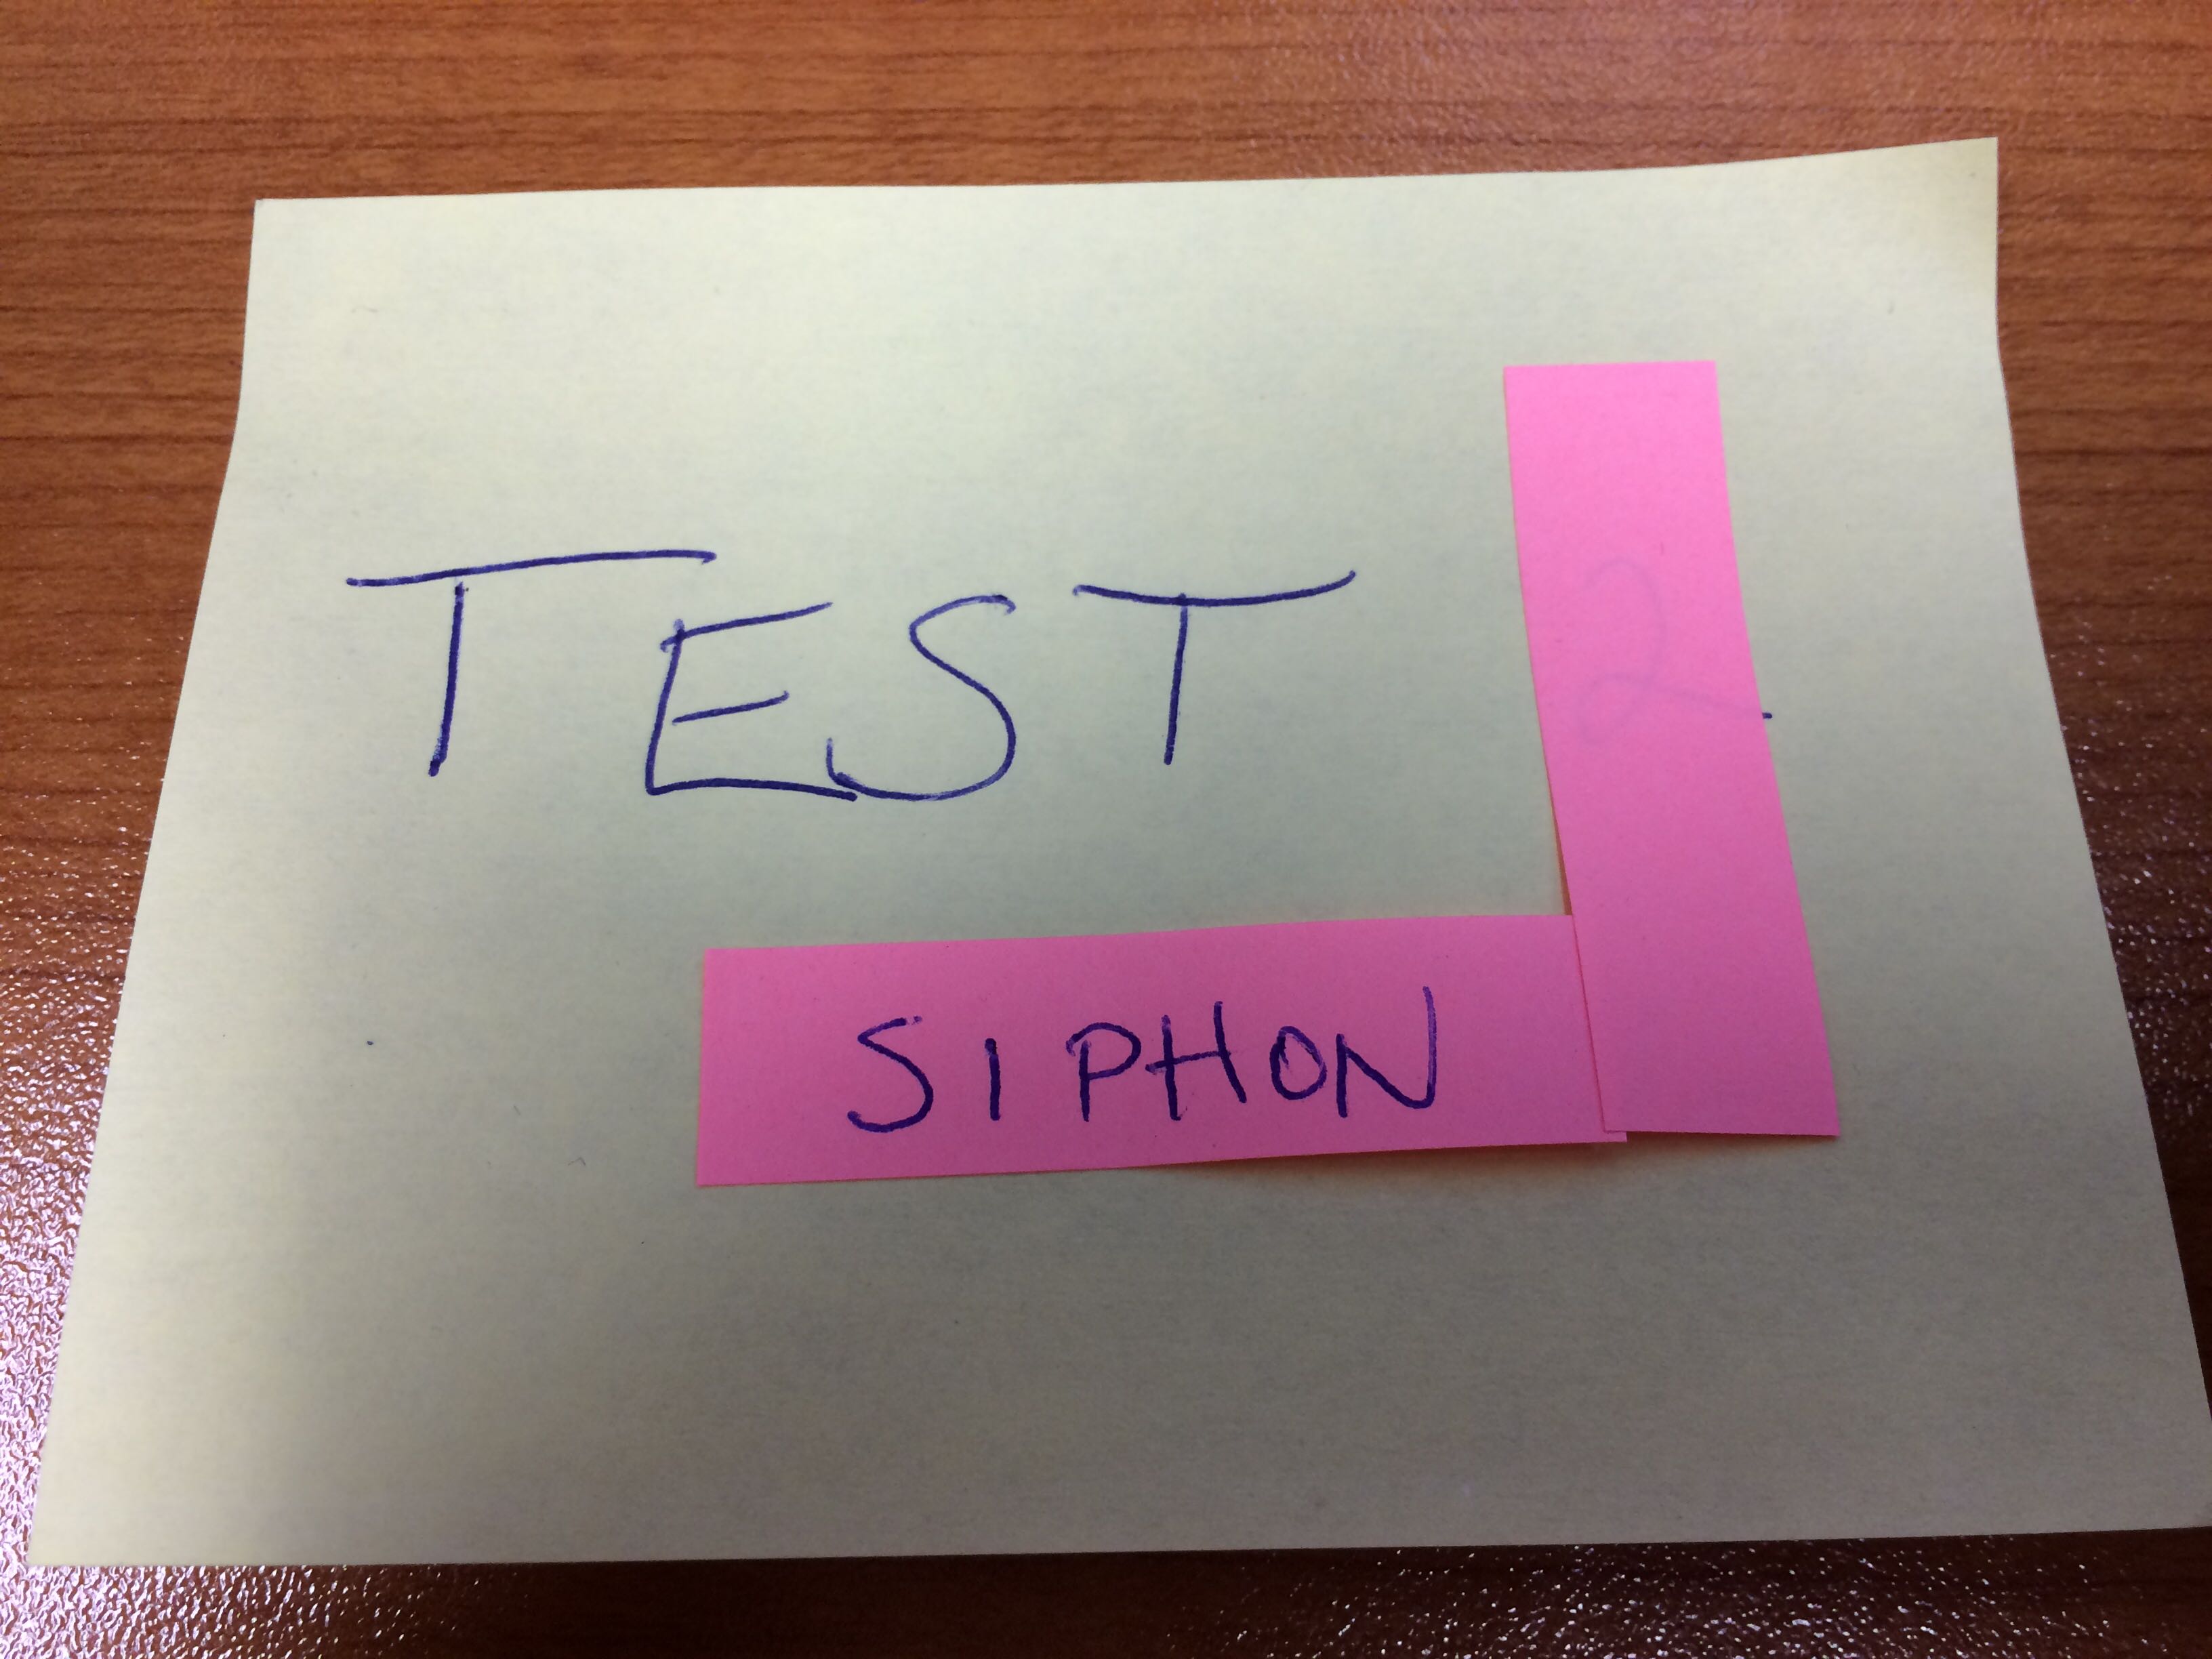 TEST 2
SIPHON